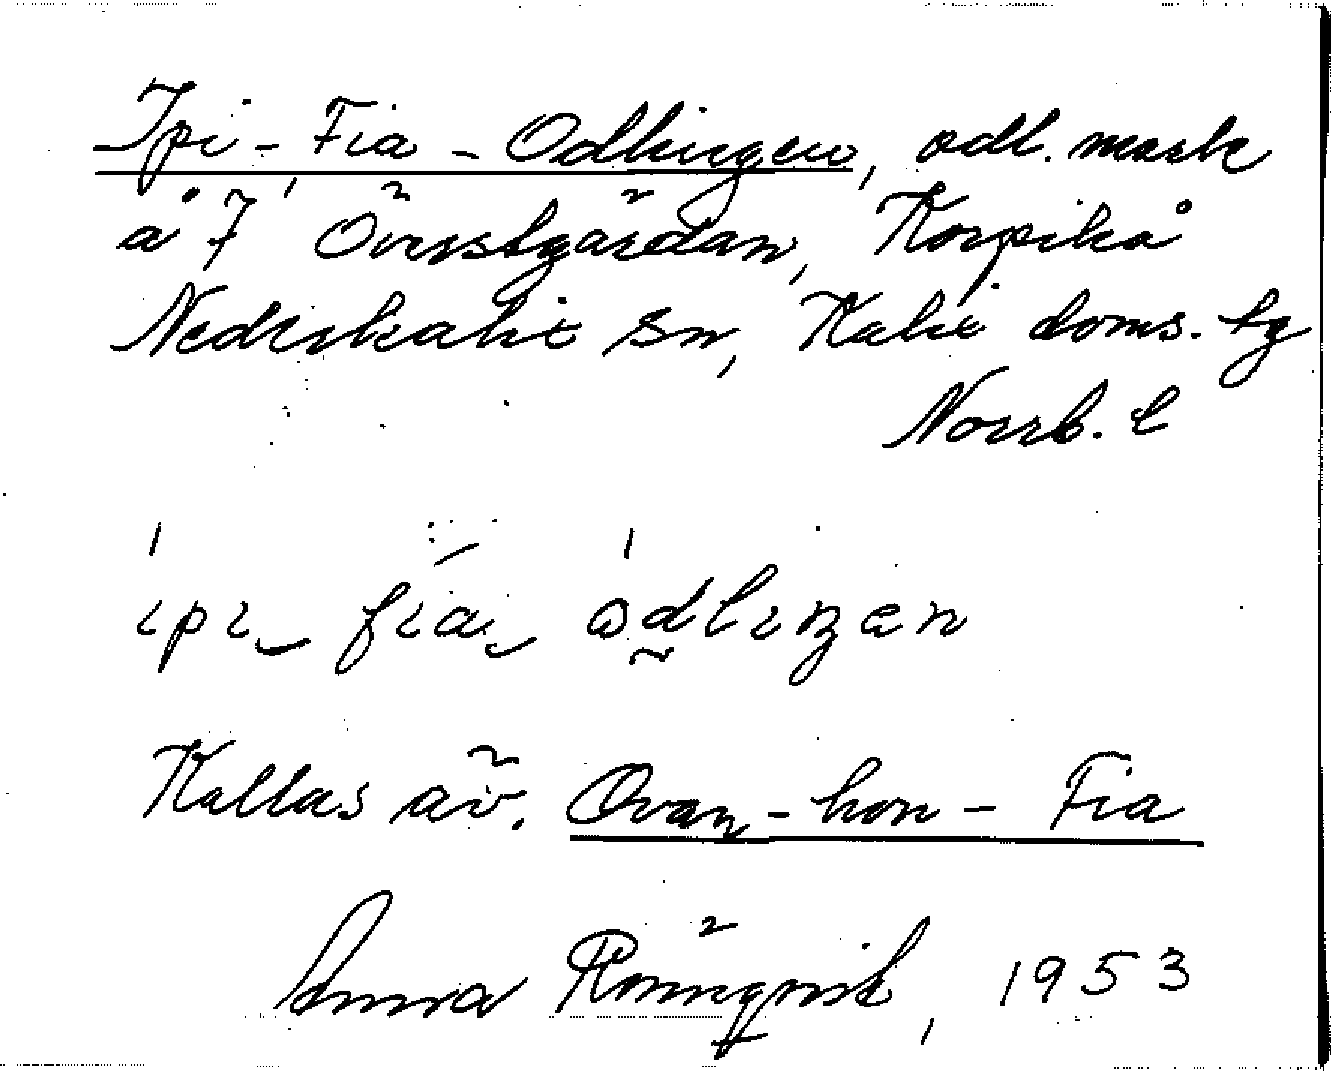 Ipi-Fia-Odlingen, odl. mark
å 7 Överstgårdan, Korpikå
Nederkalix sn, Kalix doms. tg
Norrb. l
ipi fia odliŋen
Kallas äv. Ovan-hon-Fia
Anna Rönnqvist, 1953